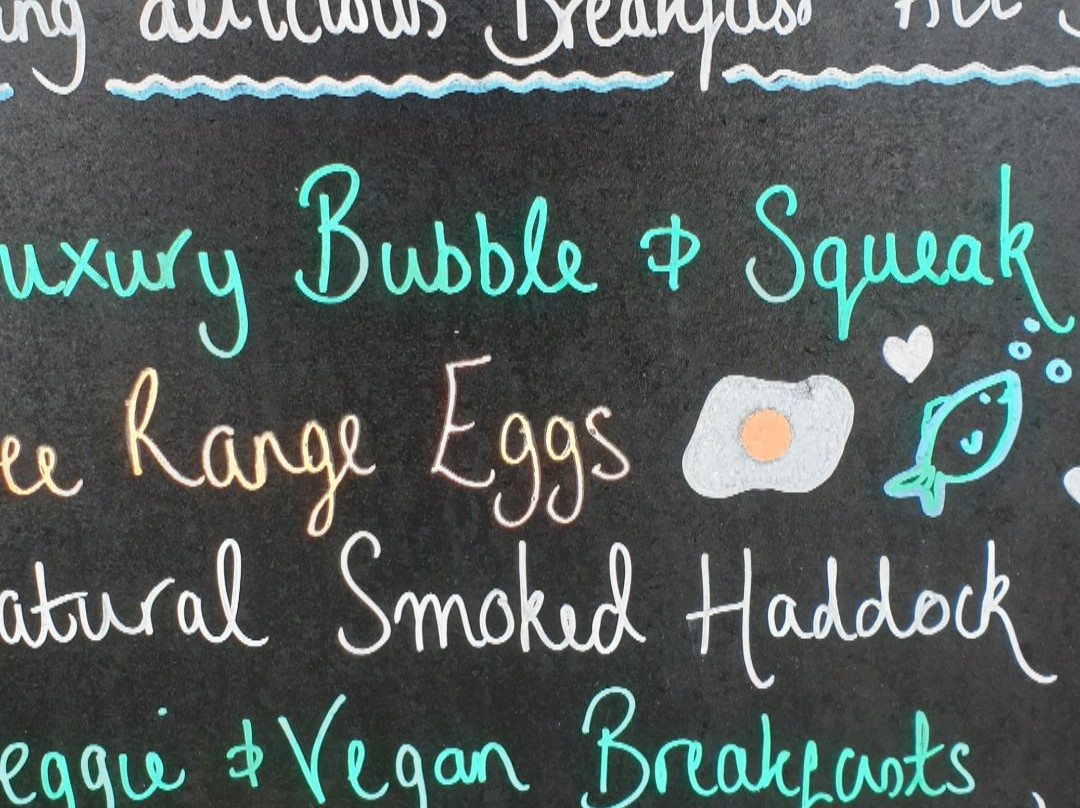 ing delicious Breakfast All
uxury Bubble & Squeak
ee Range Eggs
atural Smoked Haddock
eggie & Vegan Breakfasts